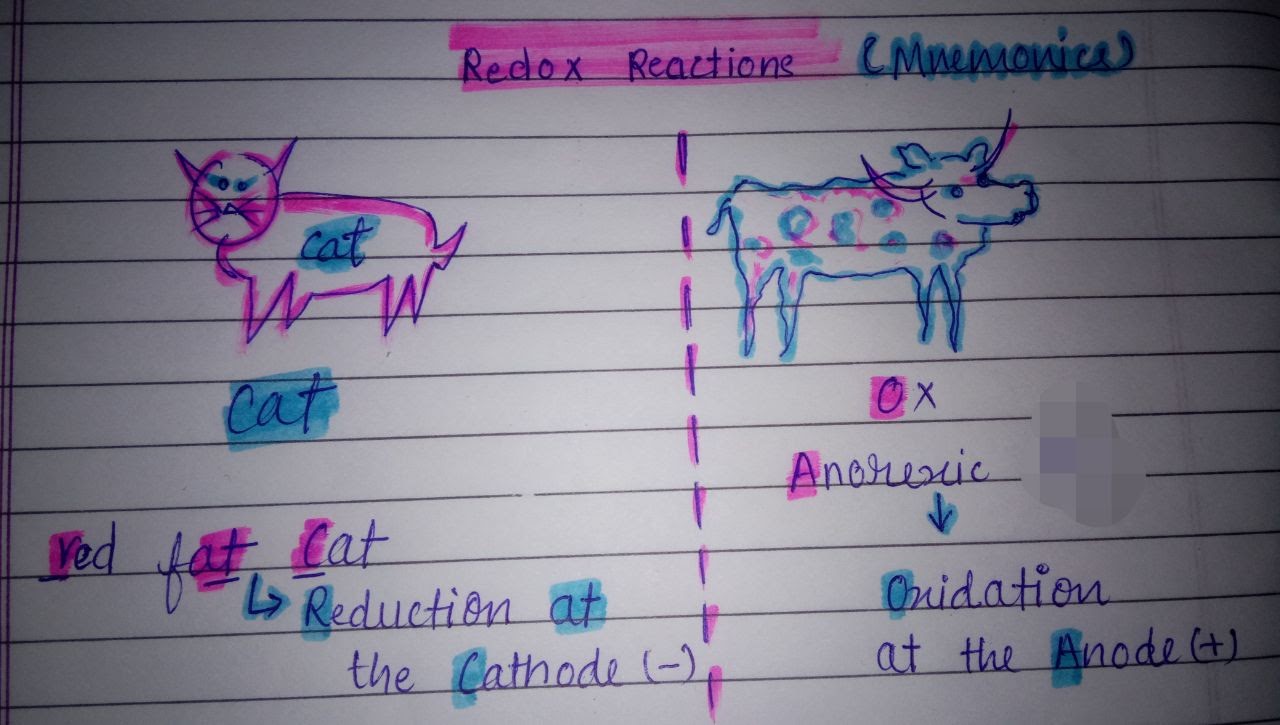 Redox Reactions (Mnemonics)
cat
Cat
red fat Cat
↳ Reduction at
the Cathode (-)
Ox
Anorexic
↓
Oxidation
at the Anode (+)